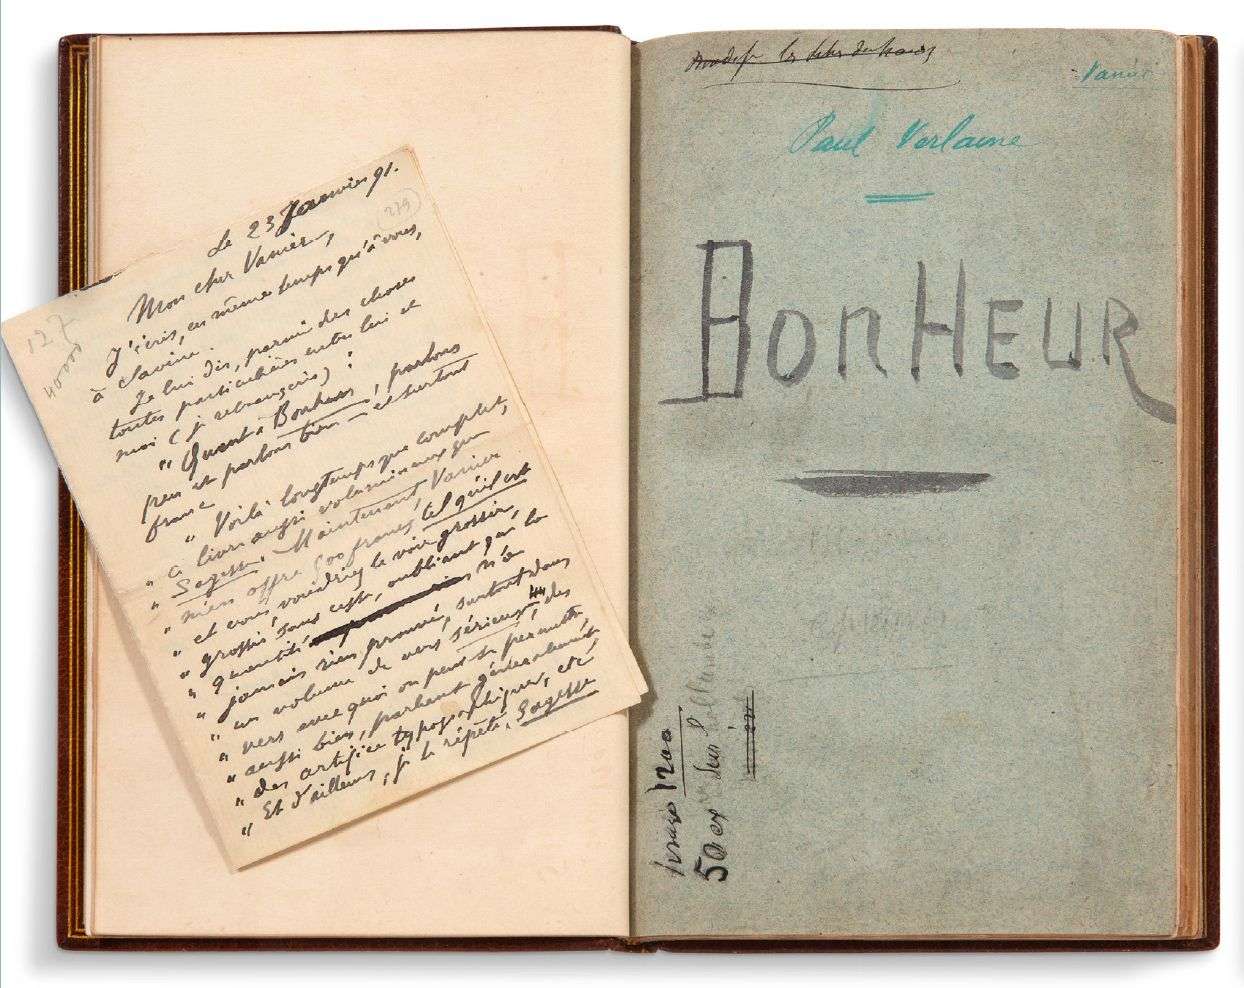 Le 23 Janvier 91.
(279)
127
40000
Mon cher Vanier,
J'écris, en même temps qu'à vous,
à Savine.
Je lui dis, parmi des choses
toutes particulières entre lui et
moi (j. retranscris) :
" Quant à Bonheur, parlons
peu et parlons bien — et surtout
franc
" Voilà longtemps que complet,
" ce livre aussi volumineux que
" Sagesse. Maintenant, Vanier
" m'en offre 500 francs tel qu'il est
" et vous voudriez le voir grossir,
" grossir sans cesse, oubliant que la
" quantité n'a
" jamais rien prouvé, surtout dans
" un volume de vers sérieux, des
" vers avec quoi on peut se permettre
" aussi bien, parlant généralement
" des artifices typographiques, etc
" Et d'ailleurs, je le répète, Sagesse
Vanier
Paul Verlaine
BONHEUR
tirage 1200
50 ex sur hollande